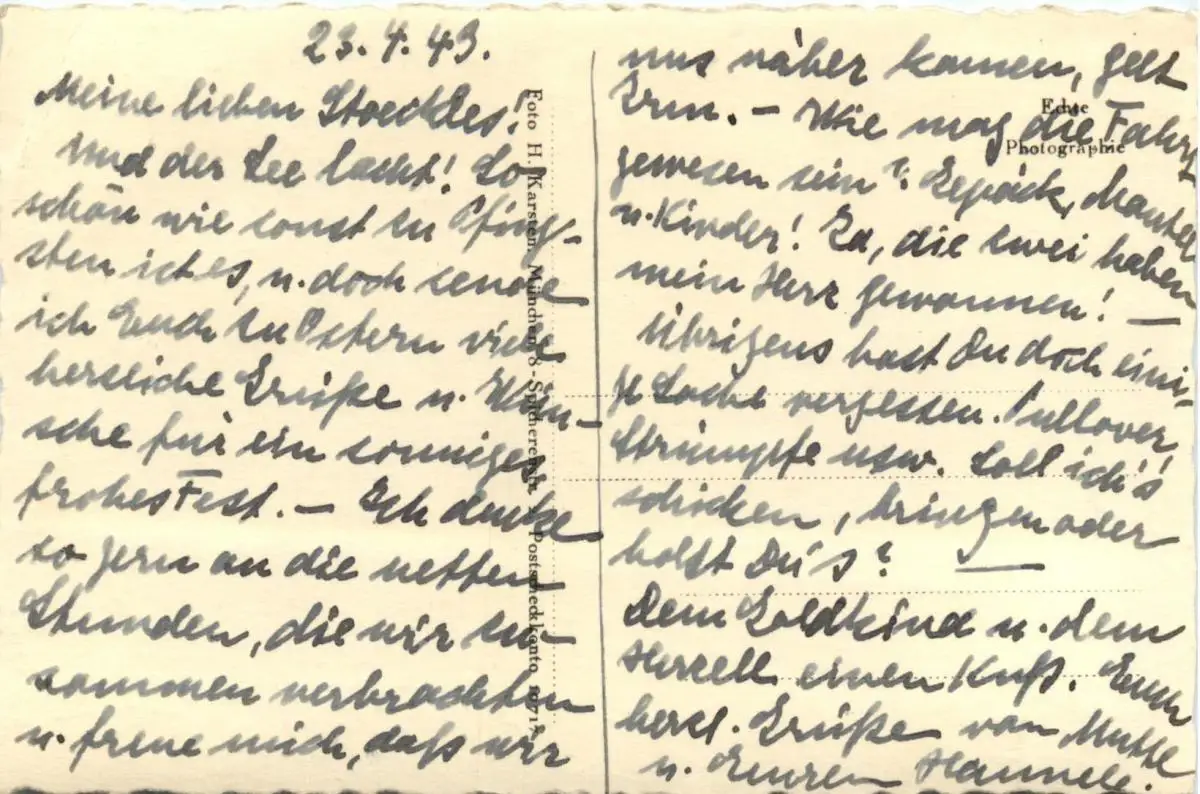 23.4.43.
Meine lieben Stoeckles!
Und der See lacht! So
schön wie sonst zu Pfing-
sten ist es, u. doch sende
ich Euch zu Ostern viele
herzliche Grüße u. Wün-
sche für ein sonniges
frohes Fest. – Ich denke
so gern an die netten
Stunden, die wir zu-
sammen verbrachten
u. freue mich, daß wir
Foto H. Karsten, München 8 - Spicherenstr. Postscheckkonto
uns näher kamen, gelt
Irm. – Wie mag die Fahrt
gewesen sein? Gepäck, Mantel
u. Kinder! Ja, die zwei haben
mein Herz gewonnen! –
Übrigens hast Du doch eini-
ge Sache vergessen. Pullover
Strümpfe usw. Soll ich's
schicken, bringen oder
holst Du's? —
Dem Goldkind u. dem
Herzell einen Kuß. Euch
herzl. Grüße von Mutte
u. Eurem Hannele.
Echte
Photographie